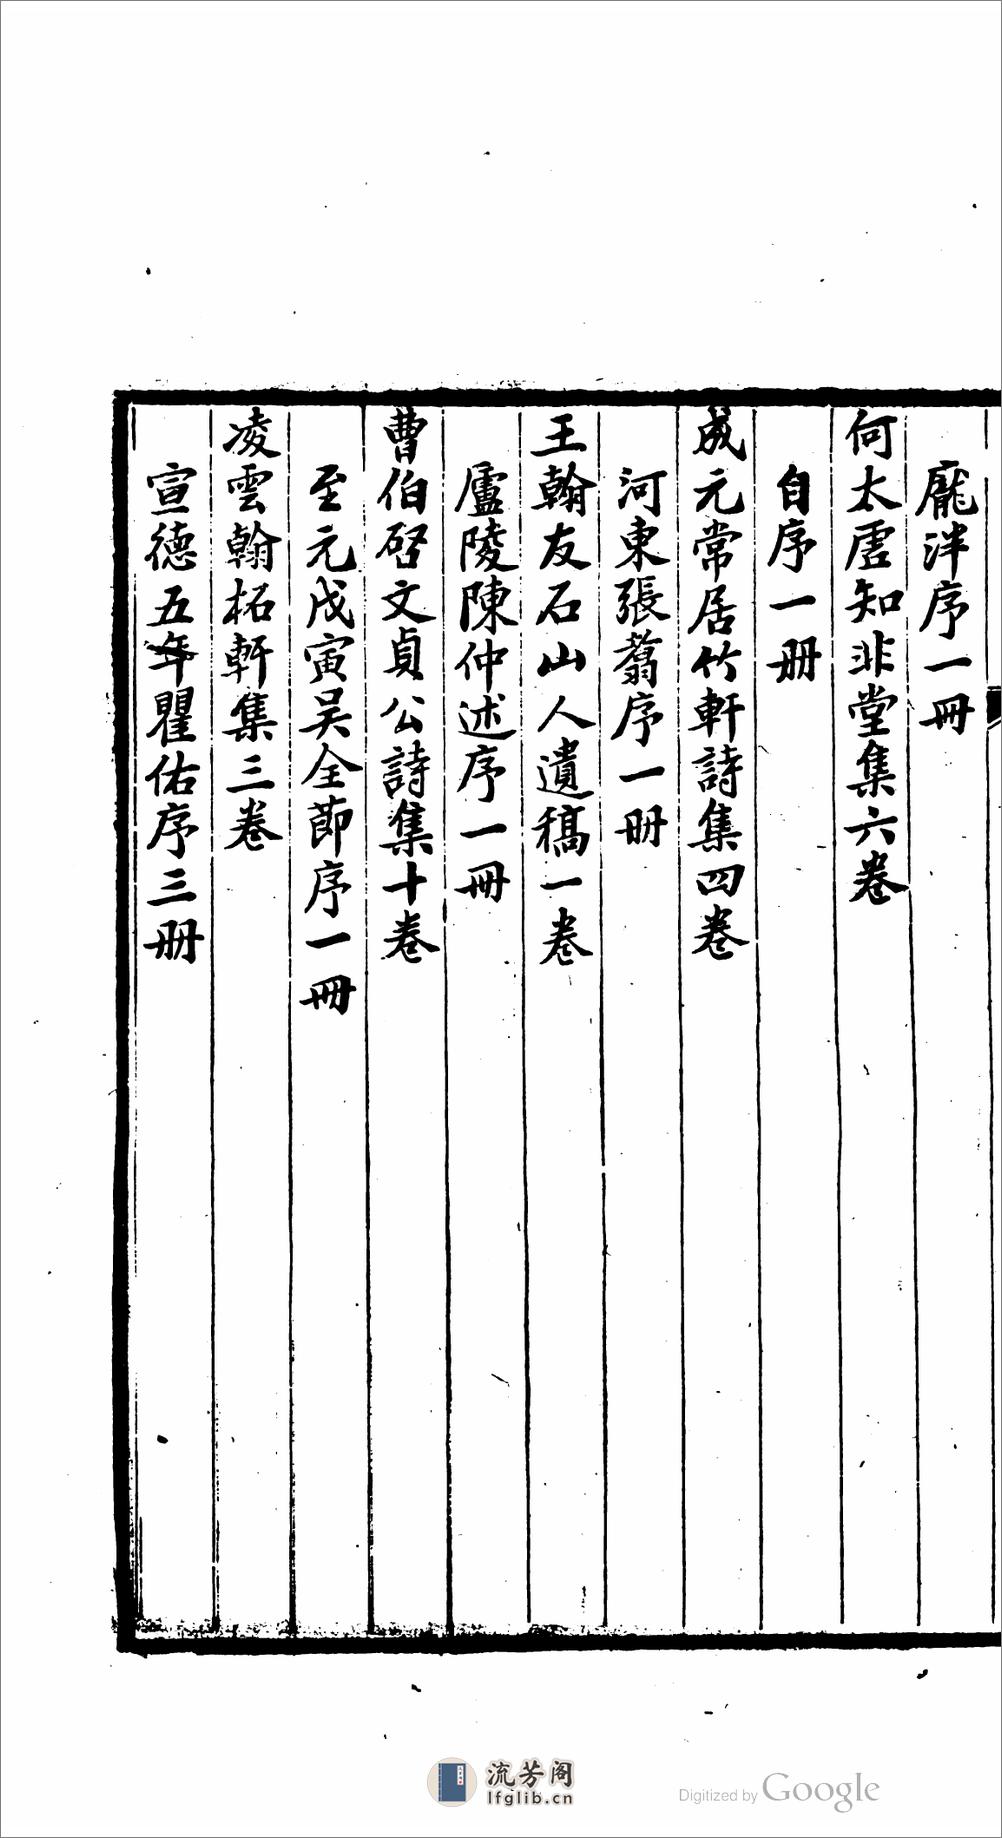 龐泮序一冊
何太虛知非堂集六卷
自序一册
成元常居竹軒詩集四卷
河東張翥序一册
王翰友石山人遺稿一卷
廬陵陳仲述序一冊
曹伯啓文貞公詩集十卷
至元戊寅吴全節序一冊
凌雲翰柘軒集三卷
宣德五年瞿佑序三册
流芳阁
lfglib.cn
Digitized by Google